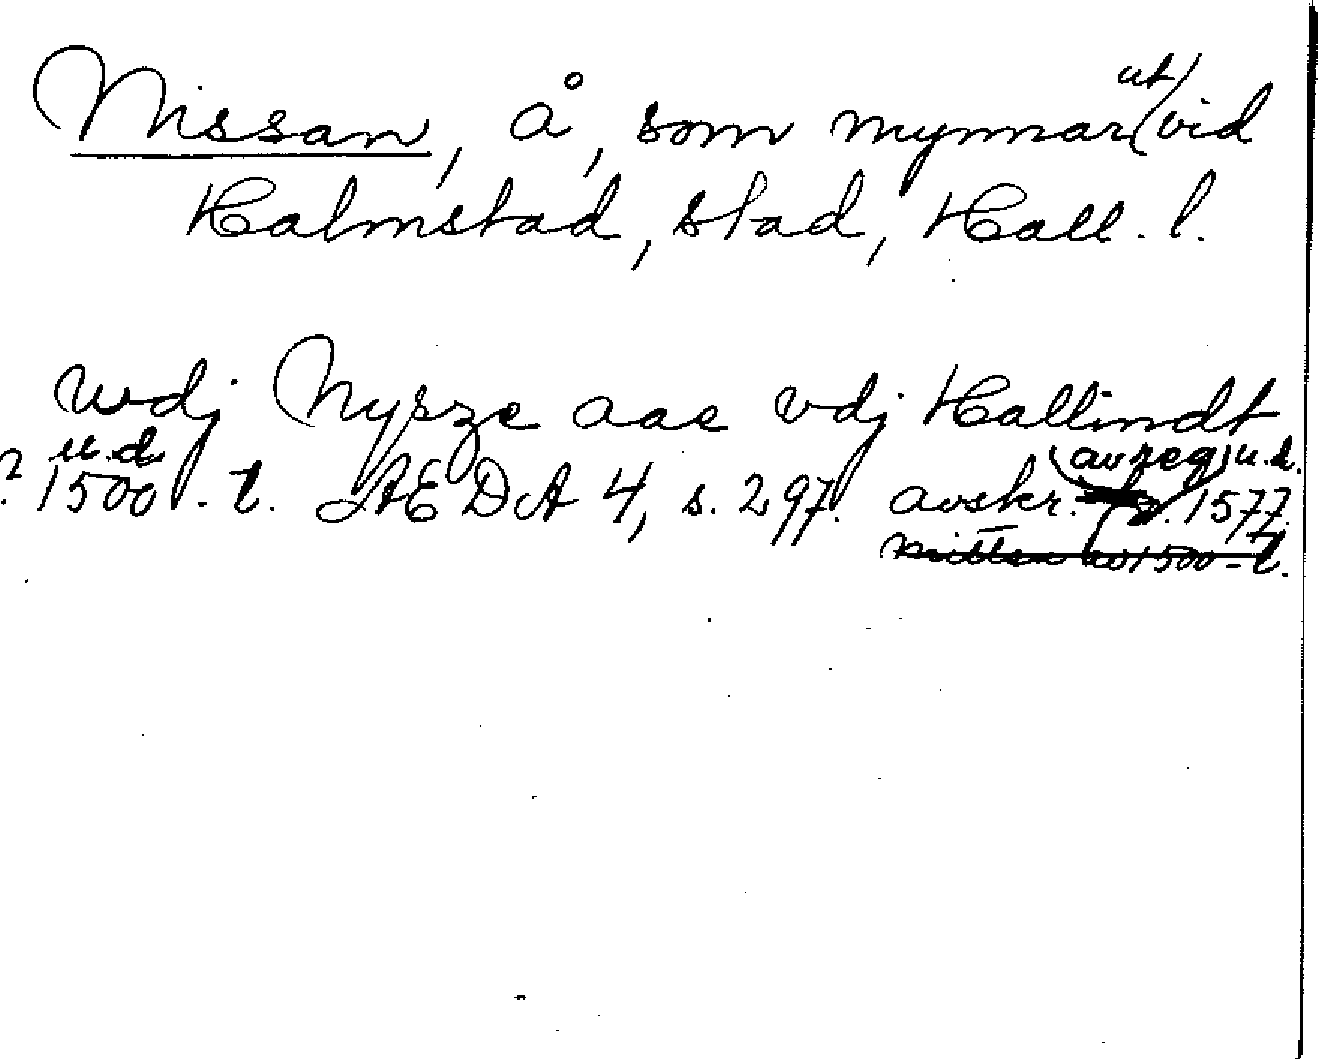 Nissan, å, som mynnar ut vid
Halmstad, stad, Hall. l.
wdj Nysze aae vdj Hallindt
? u.d. 1500-t. ÆDA 4, s. 297. avskr. (av reg) u.d. 1577.
mitten av 1500-t.